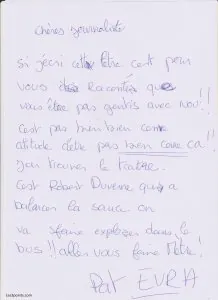 chères Journaliste
si j'écri cette lètre c'est pour
vous racontés que
vous ête pas gentils avec nous!!
c'est pas bien bien come
atitude d'être pas bien come ça!
j'en trouver le traitre
c'est Robert Duverne qui a
balancer la sauce on
va le faire exploser dans le
bus!! allez vous faire Mètre!
Pat EVRA